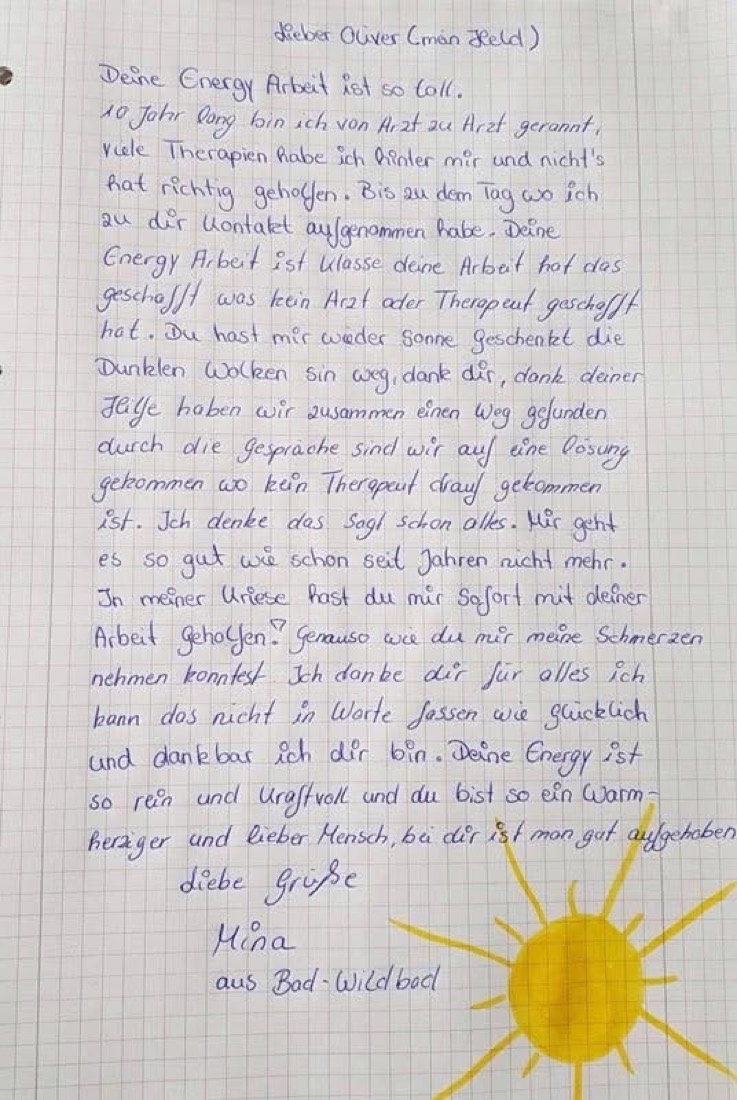 Lieber Oliver (mein Held)
Deine Energy Arbeit ist so toll.
10 Jahr lang bin ich von Arzt zu Arzt gerannt,
viele Therapien habe ich hinter mir und nicht's
hat richtig geholfen. Bis zu dem Tag wo ich
zu dir Kontakt aufgenommen habe. Deine
Energy Arbeit ist klasse deine Arbeit hat das
geschafft was kein Arzt oder Therapeut geschafft
hat. Du hast mir wieder Sonne geschenkt die
Dunklen Wolken sin weg, dank dir, dank deiner
Hilfe haben wir zusammen einen Weg gefunden
durch die gespräche sind wir auf eine lösung
gekommen wo kein Therapeut drauf gekommen
ist. Ich denke das sagt schon alles. Mir geht
es so gut wie schon seit Jahren nicht mehr.
In meiner Kriese hast du mir Sofort mit deiner
Arbeit geholfen! Genauso wie du mir meine Schmerzen
nehmen konntest Ich danke dir für alles ich
kann das nicht in Worte fassen wie glücklich
und dankbar ich dir bin. Deine Energy ist
so rein und Kraftvoll und du bist so ein Warm-
herziger und lieber Mensch, bei dir ist man gut aufgehoben
Liebe Grüße
Mina
aus Bad-Wildbad